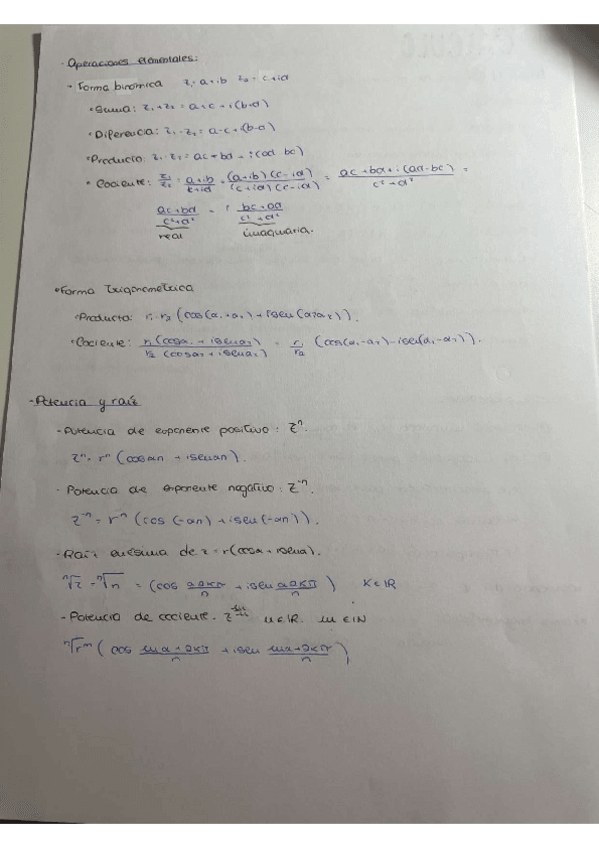 - Operaciones elementales:
• Forma binómica z₁ = a+ib z₂ = c+id
• Suma: z₁+z₂ = a+c + i(b+d)
• Diferencia: z₁-z₂ = a-c + i(b-d)
• Producto z₁·z₂ = ac + bd - i(ad bc)
• Cociente: z₁/z₂ = a+ib/c+id = (a+ib)(c-id)/(c+id)(c-id) = ac+bd+i(ad-bc)/c²+d² =
ac+bd/c²+d² + i bc+ad/c²+d²
real imaginaria.
• Forma trigonometrica
• Producto: r₁·r₂ (cos(α₁+α₂)+isen(α₁α₂)).
• Cociente: r₁(cosα₁+isenα₁)/r₂(cosα₂+isenα₂) = r₁/r₂ (cos(α₁-α₂)-isen(α₁-α₂)).
- Potencia y raíz
- Potencia de exponente positivo: zⁿ.
zⁿ = rⁿ (cosαn + isenαn).
- Potencia de exponente negativo: z⁻ⁿ.
z⁻ⁿ = r⁻ⁿ (cos (-αn) + isen (-αn)).
- Raíz enésima de z = r(cosα+isenα).
ⁿ√z = ⁿ√n = (cos α2kπ/n + isen α2kπ/n) K∈IR
- Potencia de cociente. z n∈IR. m∈IN
ⁿ√rᵐ ( cos mα+2kπ/n + isen mα+2kπ/n )